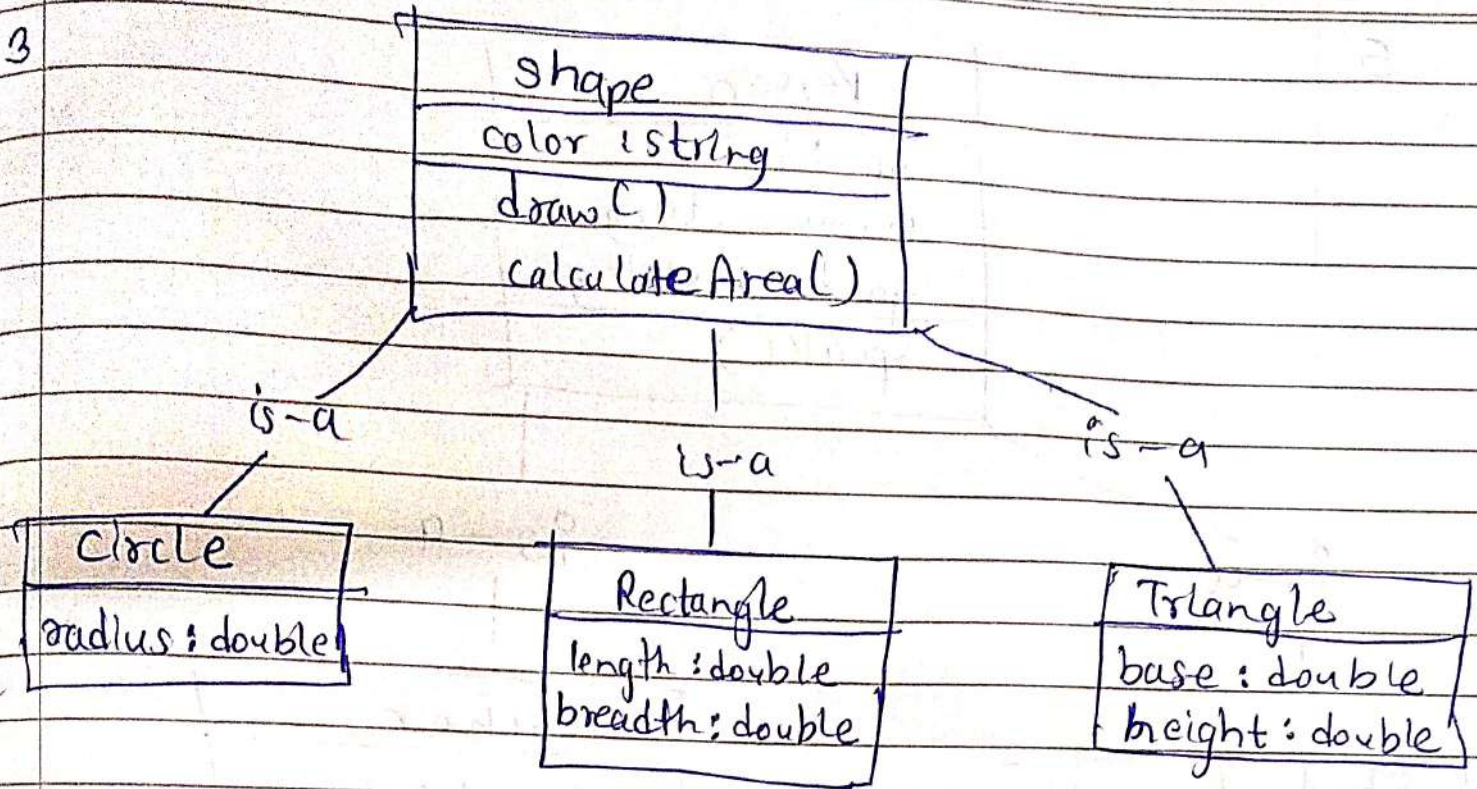 3
shape
color : string
draw()
calculateArea()
is-a
is-a
is-a
Circle
radius : double
Rectangle
length : double
breadth : double
Triangle
base : double
height : double